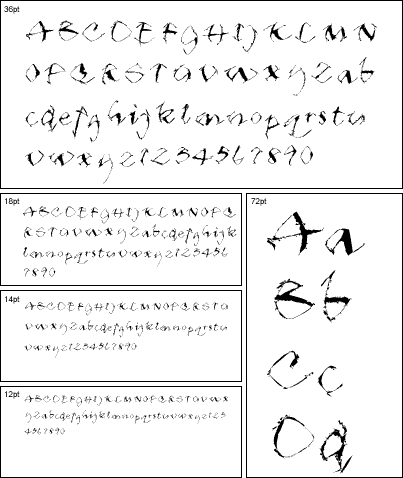 36pt
ABCDEFGHIJKLMN
OPQRSTUVWXYZab
cdefghijklmnopqrstu
vwxyz1234567890
18pt
ABCDEFGHIJKLMNOPQ
RSTUVWXYZabcdefghijkl
mnopqrstuvwxyz123456
7890
14pt
ABCDEFGHIJKLMNOPQRSTU
VWXYZabcdefghijklmnopqrstu
vwxyz1234567890
12pt
ABCDEFGHIJKLMNOPQRSTUVWX
YZabcdefghijklmnopqrstuvwxyz123
4567890
72pt
Aa
Bb
Cc
Dd